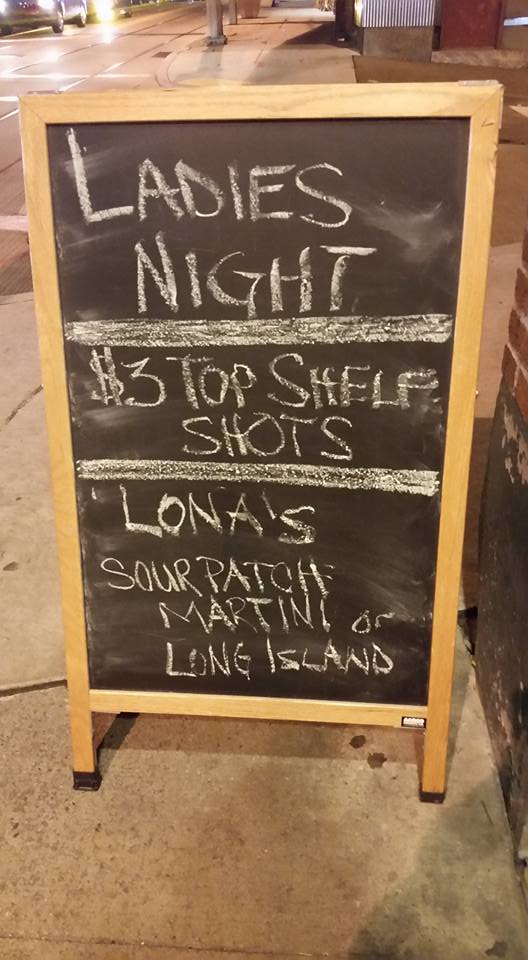 LADIES
NIGHT
$3 TOP SHELF
SHOTS
LONA'S
SOUR PATCH
MARTINI or
LONG ISLAND